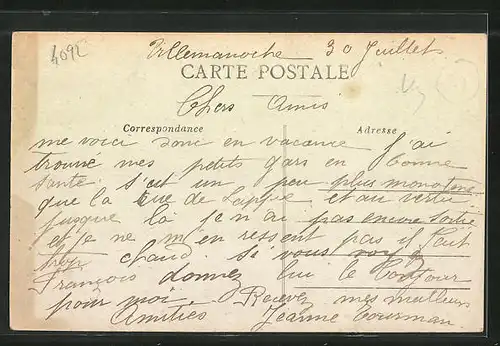 4692
Villemanoche 30 Juillet
CARTE POSTALE
Chers Amis
Correspondance Adresse
me voici donc en vacance j'ai
trouve mes petits gars en bonne
sante. s'est un peu plus monotone
que la Rue de Lappe. et au vertu
jusque la je n'ai pas encore sortie
et je ne m'en ressent pas il fait
trop chaud. si vous voyez
François donnez lui le bonjour
pour moi. Recevez mes meilleurs
Amities Jeanne